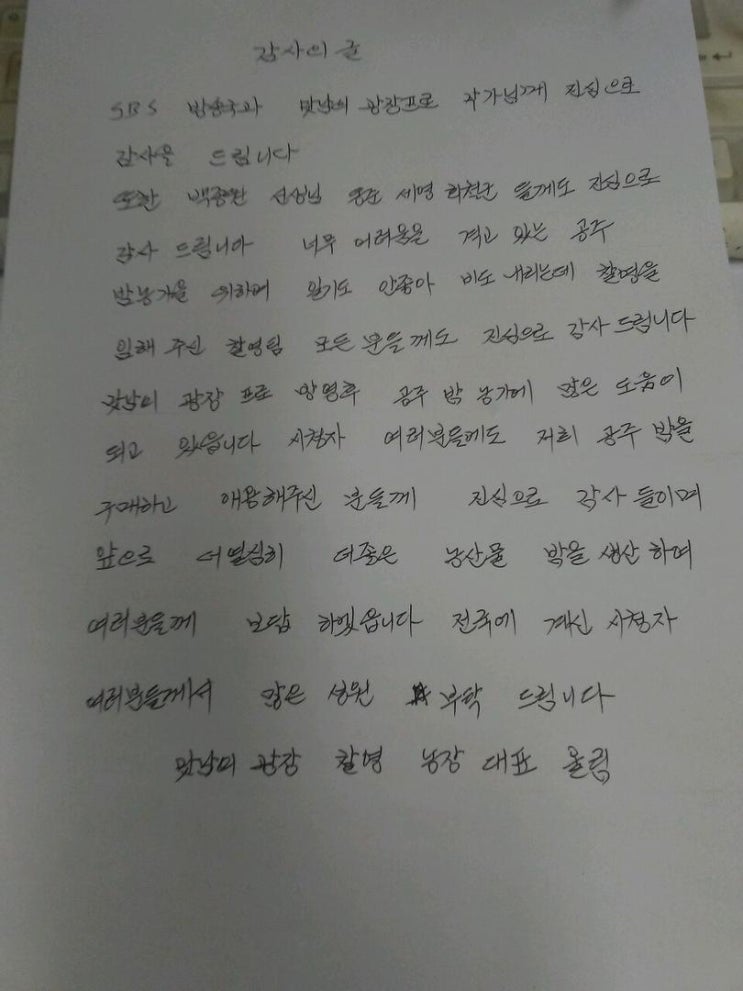 감사의 글
SBS 방송국과 맛남의 광장프로 작가님께 진심으로
감사을 드립니다
또한 백종원 선생님 동준 세영 희철군 들께도 진심으로
감사 드립니다 너무 어려움을 격고 있는 공주
밤농가을 위하여 일기도 안좋아 비도 내리는데 촬영을
임해 주신 촬영팀 모든분들께도 진심으로 감사드립니다
맛남의 광장 프로 방영후 공주 밤 농가에 많은 도움이
되고 있습니다 시청자 여러분들에도 저희 공주 밤을
구매하고 애용해주신 분들께 진심으로 감사 들이며
앞으로 더열심히 더좋은 농산물 밤을 생산 하여
여러분들께 보답 하겠읍니다 전국에 계신 시청자
여러분들게서 많은 성원 부탁 드립니다
맛남의 광장 촬영 농장 대표 올림